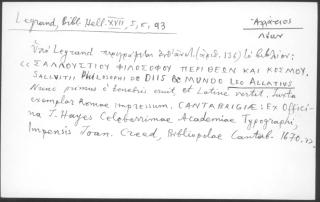 Legrand, Bibl. Hell. XVII, I, 5, 93
Λέων
Ὑπὸ Legrand περιγράφεται (ἀριθ. 136) τὸ βιβλίον:
« ΣΑΛΛΟΥΣΤΙΟΥ ΦΙΛΟΣΟΦΟΥ ΠΕΡΙ ΘΕΩΝ ΚΑΙ ΚΟΣΜΟΥ.
SALLUSTII PHILOSOPHI DE DIIS & MUNDO LEO ALLATIUS
Nunc primus è tenebris eruit, et Latine vertit. Juxta
exemplar Romae impressum. CANTABRIGIÆ: Ex Offici-
na J. Hayes Celeberrimae Academiae Typographi,
Impensis Joan. Creed, Bibliopolae Cantab. 1670. »